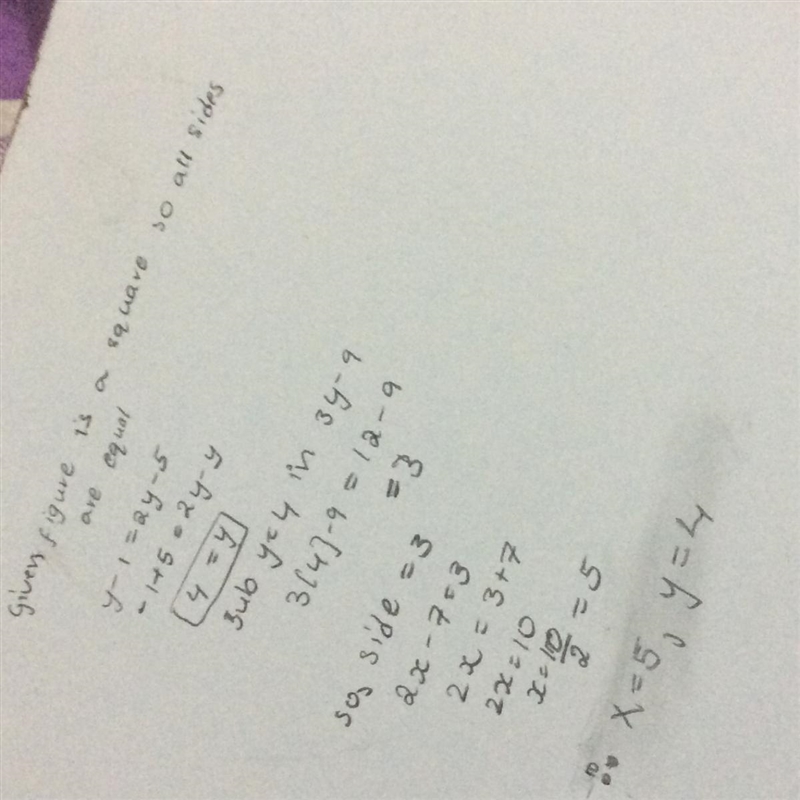 Given figure is a square so all sides
are equal
y-1=2y-5
-1+5=2y-y
4=y
sub y=4 in 3y-9
3[4]-9=12-9
=3
so, side=3
2x-7=3
2x=3+7
2x=10
x=10/2=5
∴ x=5, y=4